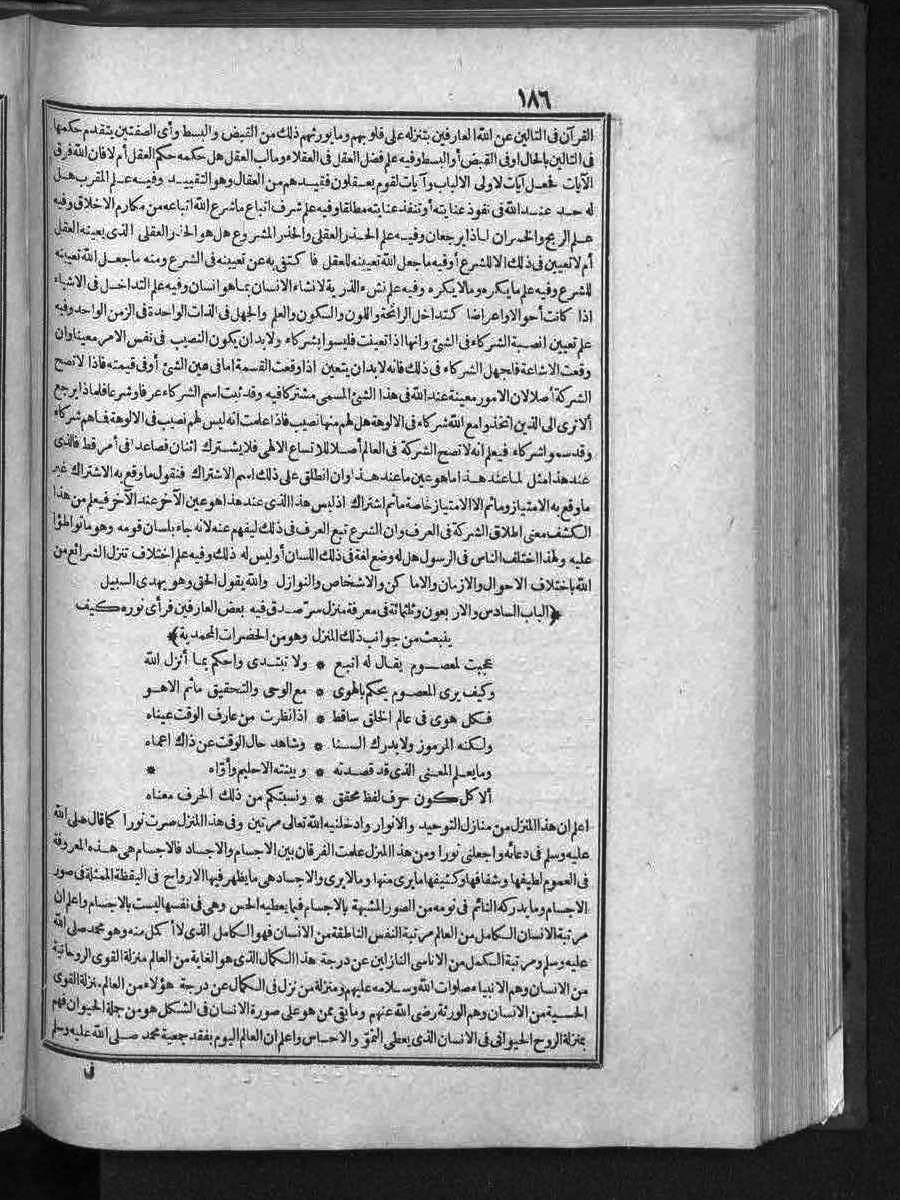 ١٨٦
القرآن فى التالين عن الله العارفين بتنزله على قلوبهم وما يورثهم ذلك من القبض والبسط وأى الصفتين يتقدم حكمها
فى التالين بالحال اوفى القبض أو البسط وفيه علم فضل العقل فى العقلاء ومالب العقل هل حكمه حكم العقل أم لا فان الله فرق
الآيات فجعل آيات لاولى الالباب وآيات لقوم يعقلون فقيدهم من العقال وهو التقييد وفيه علم المقرب هل
له حد عند الله فى نفوذ عنايته أو تنفذ عنايته مطلقا وفيه علم شرف اتباع ما شرع الله اتباعه من مكارم الاخلاق وفيه
علم الربح والخسران لماذا يرجعان وفيه علم الحذر العقلى والحذر المشروع هل هو الحذر العقلى الذى يعينه العقل
أم لا تعيين فى ذلك الا للشرع أوفيه ما جعل الله تعيينه للعقل فا كتفى به عن تعيينه فى الشرع ومنه ما جعل الله تعيينه
للشرع وفيه علم ما يكره وما لا يكره وفيه علم نشء الذرية لا نشاء الانسان بما هو انسان وفيه علم التداخل فى الاشياء
اذا كانت أحوالا واعراضا كتداخل الرائحة واللون والسكون والعلم والجهل فى الذات الواحدة فى الزمن الواحد وفيه
علم تعيين انصبة الشركاء فى الشئ وانها اذا تعينت فليسوا بشركاء ولا بد ان يكون النصيب فى نفس الامر معينا وان
وقعت الاشاعة فلجهل الشركاء فى ذلك فانه لا بد ان يتعين اذا وقعت القسمة اما فى عين الشئ أو فى قيمته فاذا لا تصح
الشركة أصلا لان الامور معينة عند الله فى هذا الشئ المسمى مشتركا فيه وقد ثبت اسم الشركاء عرفا وشرعا فلماذا يرجع
ألا ترى الى الذين اتخذوا مع الله شركاء فى الالوهة هل لهم منها نصيب فاذا علمت انه ليس لهم نصيب فى الالوهة فاهم شركاء
وقد سموا شركاء فيعلم انه لا تصح الشركة فى العالم أصلا للاتساع الالهى فلا يشترك اثنان فصاعدا فى أمر قط فالذى
عند هذا مثل لما عند هذا ما هو عين ما عند هذا وان انطلق على ذلك اسم الاشتراك فنقول ما وقع به الاشتراك غير
ما وقع به الامتياز وما ثم الا الامتياز خاصة ما ثم اشتراك اذ ليس هذا الذى عند هذا هو عين الآخر عند الآخر فيعلم من هذا
الكشف معنى اطلاق الشركة فى العرف وان الشرع تبع العرف فى ذلك ليفهم عنه لانه جاء بلسان قومه وهو ما تواطؤا
عليه ولهذا اختلف الناس فى الرسول هل له وضع لغة فى ذلك اللسان أو ليس له ذلك وفيه علم اختلاف تنزل الشرائع من
الله باختلاف الاحوال والازمان والاما كن والاشخاص والنوازل والله يقول الحق وهو يهدى السبيل
﴿الباب السادس والاربعون وثلثمائة فى معرفة منزل سر صدق فيه بعض العارفين فرأى نوره كيف
ينبعث من جوانب ذلك المنزل وهو من الحضرات المحمدية﴾
عجبت لمعصوم يقال له اتبع * ولا تبتدى واحكم بما أنزل الله
وكيف يرى المعصوم يحكم بالهوى * مع الوحى والتحقيق ما ثم الاهو
فكل هوى فى عالم الخلق ساقط * اذا نظرت من عارف الوقت عيناه
ولكنه المرموز ولا يدرك السنا * وشاهد حال الوقت عن ذاك اعماه
وما يعلم المعنى الذى قد قصدته * وبينته الاحليم وأواه *
ألا كل كون حرف لفظ محقق * ونسبتكم من ذلك الحرف معناه
اعلم ان هذا المنزل من منازل التوحيد والانوار وادخلنيه الله تعالى مرتين وفى هذا المنزل صرت نورا كما قال صلى الله
عليه وسلم فى دعائه واجعلنى نورا ومن هذا المنزل علمت الفرقان بين الاجسام والاجساد فالاجسام هى هذه المعروفة
فى العموم لطيفها وشفافها وكثيفها ما يرى منها وما لا يرى والاجساد هى ما يظهر فيها الارواح فى اليقظة الممثلة فى صور
الاجسام وما يدركه النائم فى نومه من الصور المشبهة بالاجسام فيما يعطيه الحس وهى فى نفسها ليست بالاجسام واعلم ان
مرتبة الانسان الكامل من العالم مرتبة النفس الناطقة من الانسان فهو الكامل الذى لا أكمل منه وهو محمد صلى الله
عليه وسلم ومرتبة الكمل من الاناسى النازلين عن درجة هذا الكمال الذى هو الغاية من العالم منزلة القوى الروحانية
من الانسان وهم الانبياء صلوات الله وسلامه عليهم ومنزلة من نزل فى الكمال عن درجة هؤلاء من العالم منزلة القوى
الحسية من الانسان وهم الورثة رضى الله عنهم وما بقى ممن هو على صورة الانسان فى الشكل هو من جملة الحيوان فهم
بمنزلة الروح الحيوانى فى الانسان الذى يعطى النمو والاحساس واعلم ان العالم اليوم بفقد جمعية محمد صلى الله عليه وسلم
فى